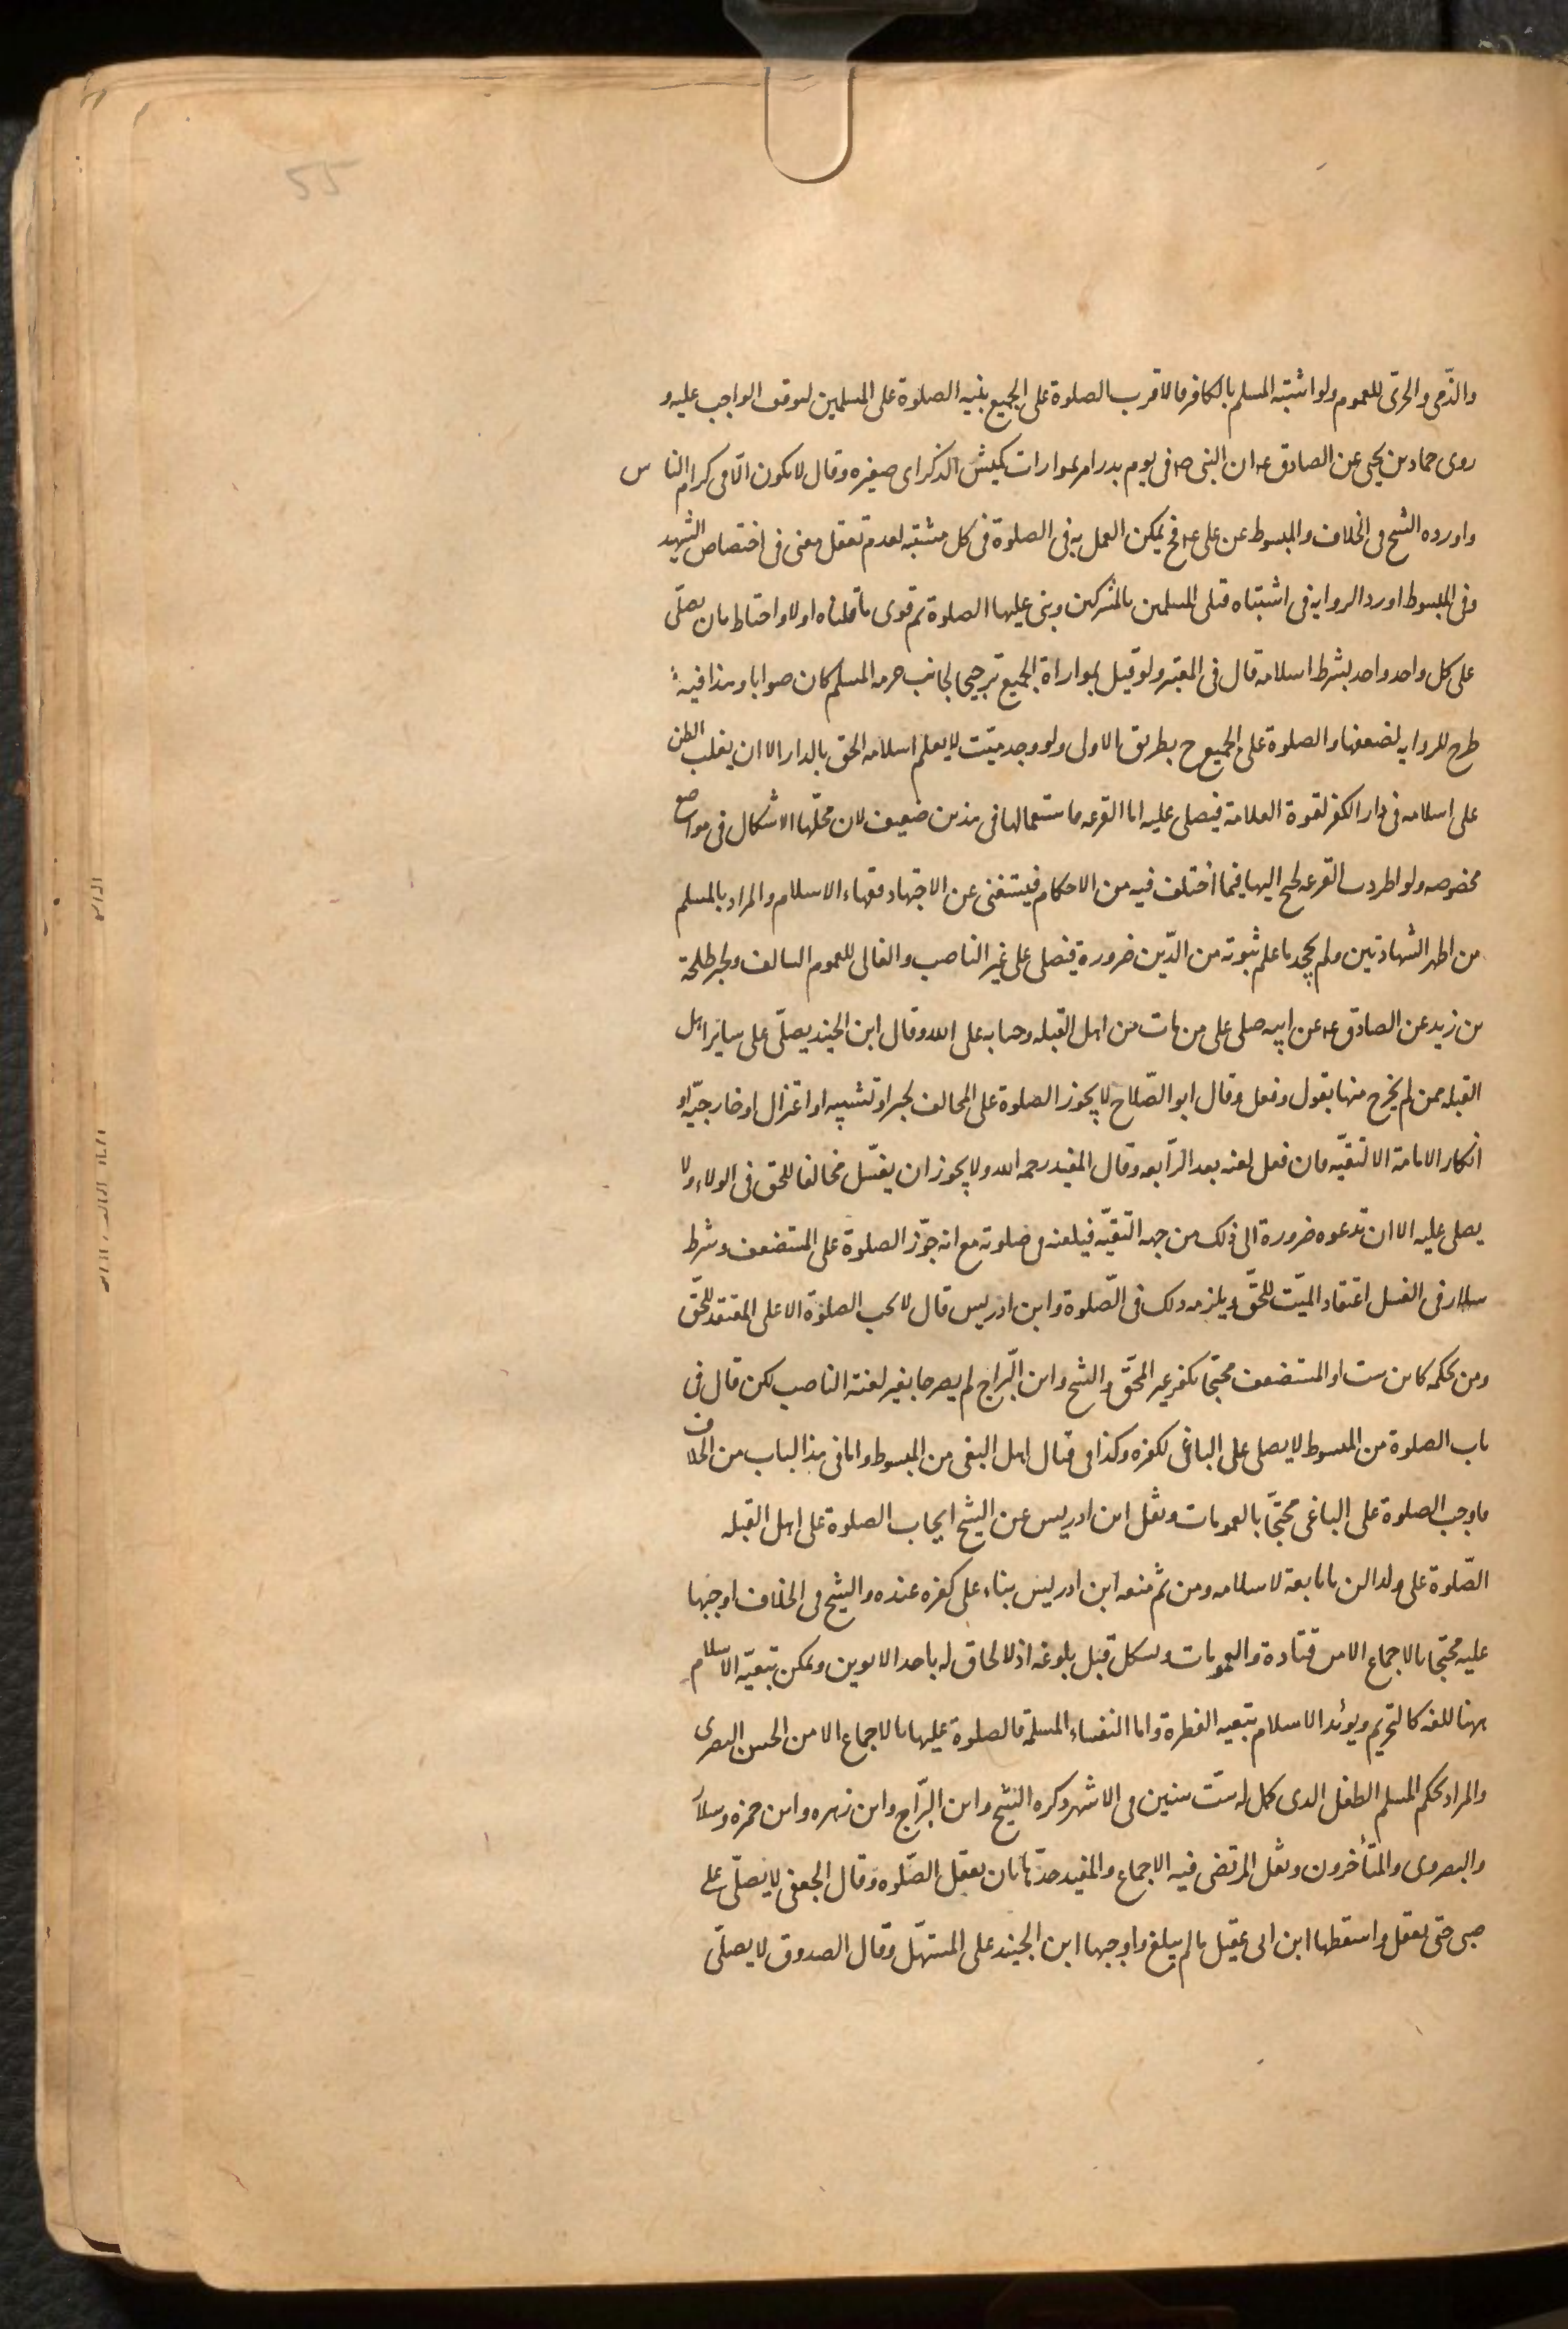 55
والذّمى والحربى للعموم ولو اشتبه المسلم بالكافر فالاقرب الصلوة على الجميع بنيه الصلوة على المسلمين لتوقف الواجب عليه و
روى حماد بن يحيى عن الصادق ع ان النبى ص فى يوم بدر امر بموارات كميش الذكر اى صغيره وقال لا يكون الّا فى كرام الناس
واورده الشيخ فى الخلاف والمبسوط عن على ع فح يمكن العمل به فى الصلوة فى كل مشتبه لعدم تعقل معنى فى اختصاص الشهيد
وفى المبسوط اورد الروايه فى اشتباه قتلى المسلمين بالمشركين وبنى عليها الصلوة ثم قوى ما قلناه اولا واحتاط بان يصلّى
على كل واحد واحد بشرط اسلامه قال فى المعتبر ولو قيل بمواراة الجميع ترجيحا لجانب حرمه المسلم كان صوابا وهذا فيه
طرح للروايه لضعفها والصلوة على الجميع ح بطريق الاولى ولو وجد ميّت لا يعلم اسلامه الحق بالدار الا ان يغلب الظن
على اسلامه فى دار الكفر لقوة العلامة فيصلى عليه اما القرعه فاستعمالها فى هذين ضعيف لان محلّها الاشكال فى مواضع
مخصوصه ولو اطردت القرعه لجئ اليها فيما اختلف فيه من الاحكام فيستغنى عن الاجتهاد فقهاء الاسلام والمراد بالمسلم
من اظهر الشهادتين ولم يجحد ما علم ثبوته من الدّين ضرورة فيصلى على غير الناصب والغالى للعموم السالف ولخبر طلحة
بن زيد عن الصادق ع عن ابيه صلى على من مات من اهل القبله وحسابه على الله وقال ابن الجنيد يصلّى على ساير اهل
القبله ممن لم يخرج منها بقول وفعل وقال ابو الصّلاح لا يجوز الصلوة على المخالف لجبر او تشبيه او اعتزال او خارجيّه او
انكار الامامة الا لتقيّه فان فعل لعنه بعد الرّابعه وقال المفيد رحمه الله ولا يجوز ان يغسّل مخالفا للحق فى الولاء ولا
يصلى عليه الا ان تدعوه ضرورة الى ذلك من جهه التقيّه فيلعنه فى صلوته مع انه جوّز الصلوة على المستضعف وشرط
سلار فى الغسل اعتقاد الميّت للحقّ ويلزمه ذلك فى الصّلوة وابن ادريس قال لا يجب الصلوة الا على المعتقد للحّق
ومن بحكمه كابن ست او المستضعف محتجّا بكفر غير المحّق والشيخ وابن البّراج لم يصرحا بغير لعنة الناصب لكن قال فى
باب الصلوة من المبسوط لا يصلى على الباغى لكفره وكذا فى قتال اهل البغى من المبسوط واما فى هذا الباب من الخلاف
فاوجب الصلوة على الباغى محتجّا بالعمومات ونقل ابن ادريس عن الشيخ ايجاب الصلوة على اهل القبله
الصّلوة على ولد الزنا تابعة لاسلامه ومن ثم منعه ابن ادريس بناء على كفره عنده والشيخ فى الخلاف اوجبها
عليه محتجا بالاجماع الا من قتادة والعمومات ويشكل قبل بلوغه اذ لا لحاق له باحد الابوين ويمكن تبعيّه الاسلام
هنا للغه كالتحريم ويؤيد الاسلام تبعيه الفطرة واما النفساء المسلمة فالصلوة عليها بالاجماع الا من الحسن البصرى
والمراد بحكم المسلم الطفل الذى كمل له ستّ سنين فى الاشهر ذكره الشيخ وابن البّراج وابن زهره وابن حمزه وسلار
والبصروى والمتأخرون ونقل المرتضى فيه الاجماع والمفيد حدّها بان يعقل الصّلوه وقال الجعفى لا يصلّى على
صبى حتى يعقل واسقطها ابن ابى عقيل ما لم يبلغ واوجبها ابن الجنيد على المستهّل وقال الصدوق لا يصلّى